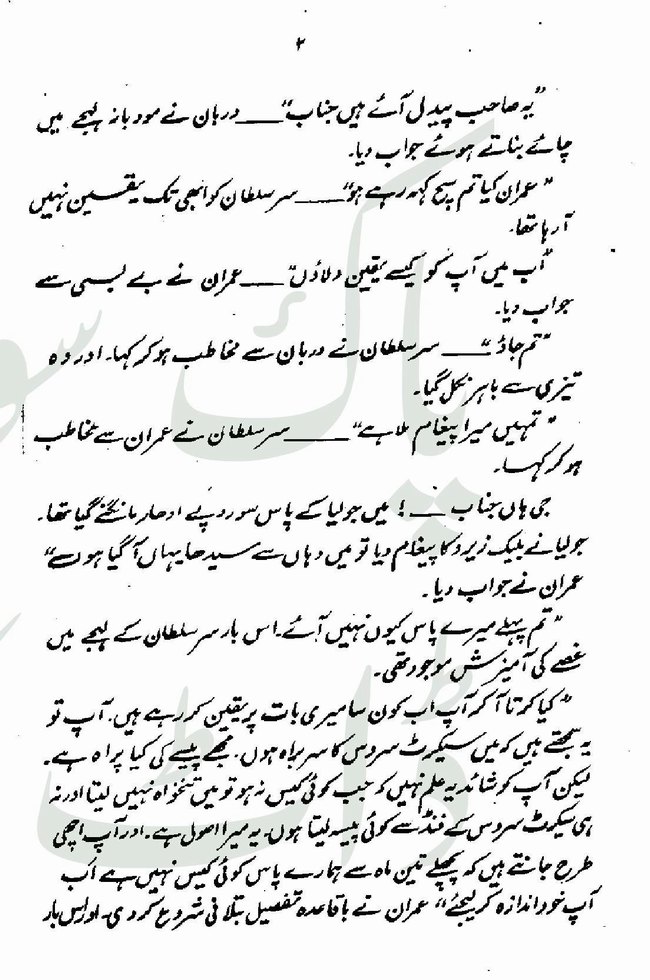 ۳
"یہ صاحب پیدل آئے ہیں جناب" ــــــ دربان نے مودبانہ لہجے میں
چائے بناتے ہوئے جواب دیا۔
"عمران کیا تم سچ کہہ رہے ہو" ــــــ سر سلطان کو ابھی تک یقین نہیں
آ رہا تھا۔
"اب میں آپ کو کیسے یقین دلاؤں" ــــــ عمران نے بے بسی سے
جواب دیا۔
"تم جاؤ" ــــــ سر سلطان نے دربان سے مخاطب ہو کر کہا۔ اور وہ
تیزی سے باہر نکل گیا۔
"تمہیں میرا پیغام ملا ہے" ــــــ سر سلطان نے عمران سے مخاطب
ہو کر کہا۔
جی ہاں جناب ــــ! میں جولیا کے پاس سو روپے ادھار مانگنے گیا تھا۔
جولیا نے بلیک زیرو کا پیغام دیا تو میں وہاں سے سیدھا یہاں آ گیا ہوں"
عمران نے جواب دیا۔
"تم پہلے میرے پاس کیوں نہیں آئے۔ اس بار سر سلطان کے لہجے میں
غصے کی آمیزش موجود تھی۔
"کیا کرتا آ کر آپ اب کون سا میری بات پر یقین کر رہے ہیں۔ آپ تو
یہ سمجھتے ہیں کہ میں سیکرٹ سروس کا سربراہ ہوں۔ مجھے پیسے کی کیا پرواہ ہے۔
لیکن آپ کو شائد یہ علم نہیں کہ جب کوئی کیس نہ ہو تو میں تنخواہ نہیں لیتا اور نہ
ہی سیکرٹ سروس کے فنڈ سے کوئی پیسہ لیتا ہوں۔ یہ میرا اصول ہے۔ اور آپ اچھی
طرح جانتے ہیں کہ پچھلے تین ماہ سے ہمارے پاس کوئی کیس نہیں ہے اب
آپ خود اندازہ کر لیجئے" عمران نے باقاعدہ تفصیل بتلانی شروع کر دی۔ اور اس بار
پاک
ڈاٹ